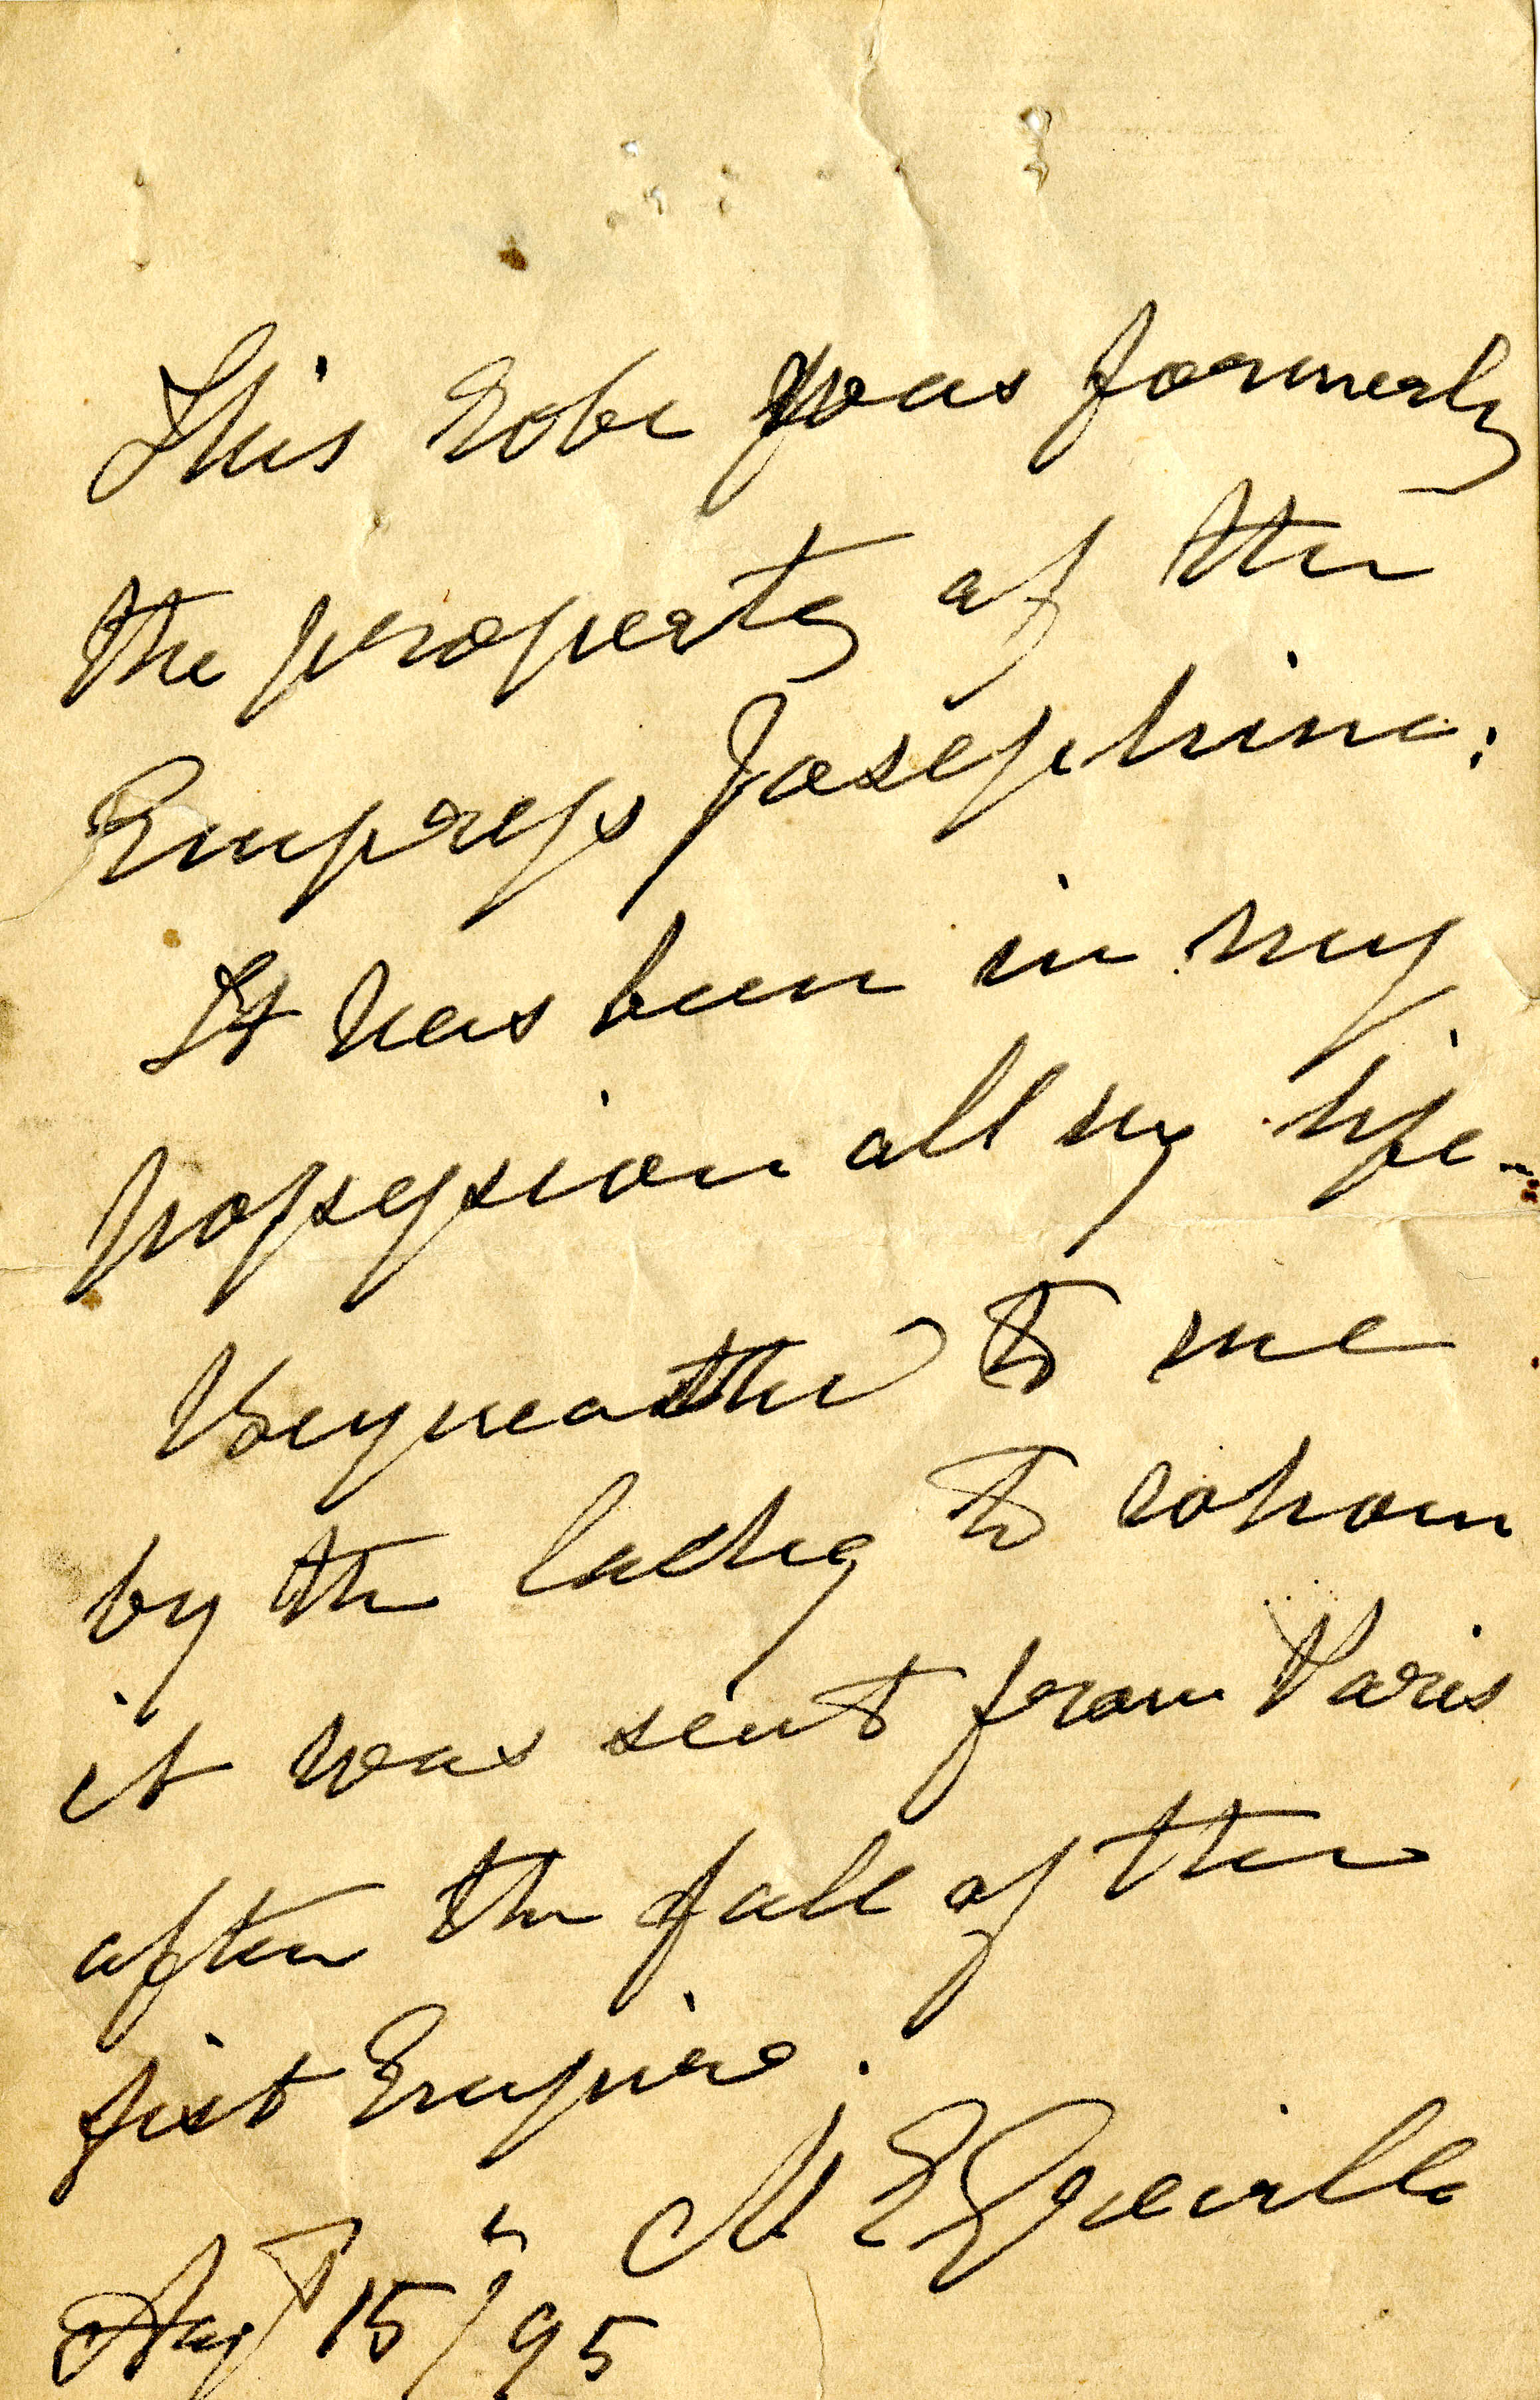 This robe was formerly
the property of the
Empress Josephine:
It has been in my
possession all my life -
Bequeathed to me
by the lady to whom
it was sent from Paris
after the fall of the
fist Empire.
M E
Augt 15th/95